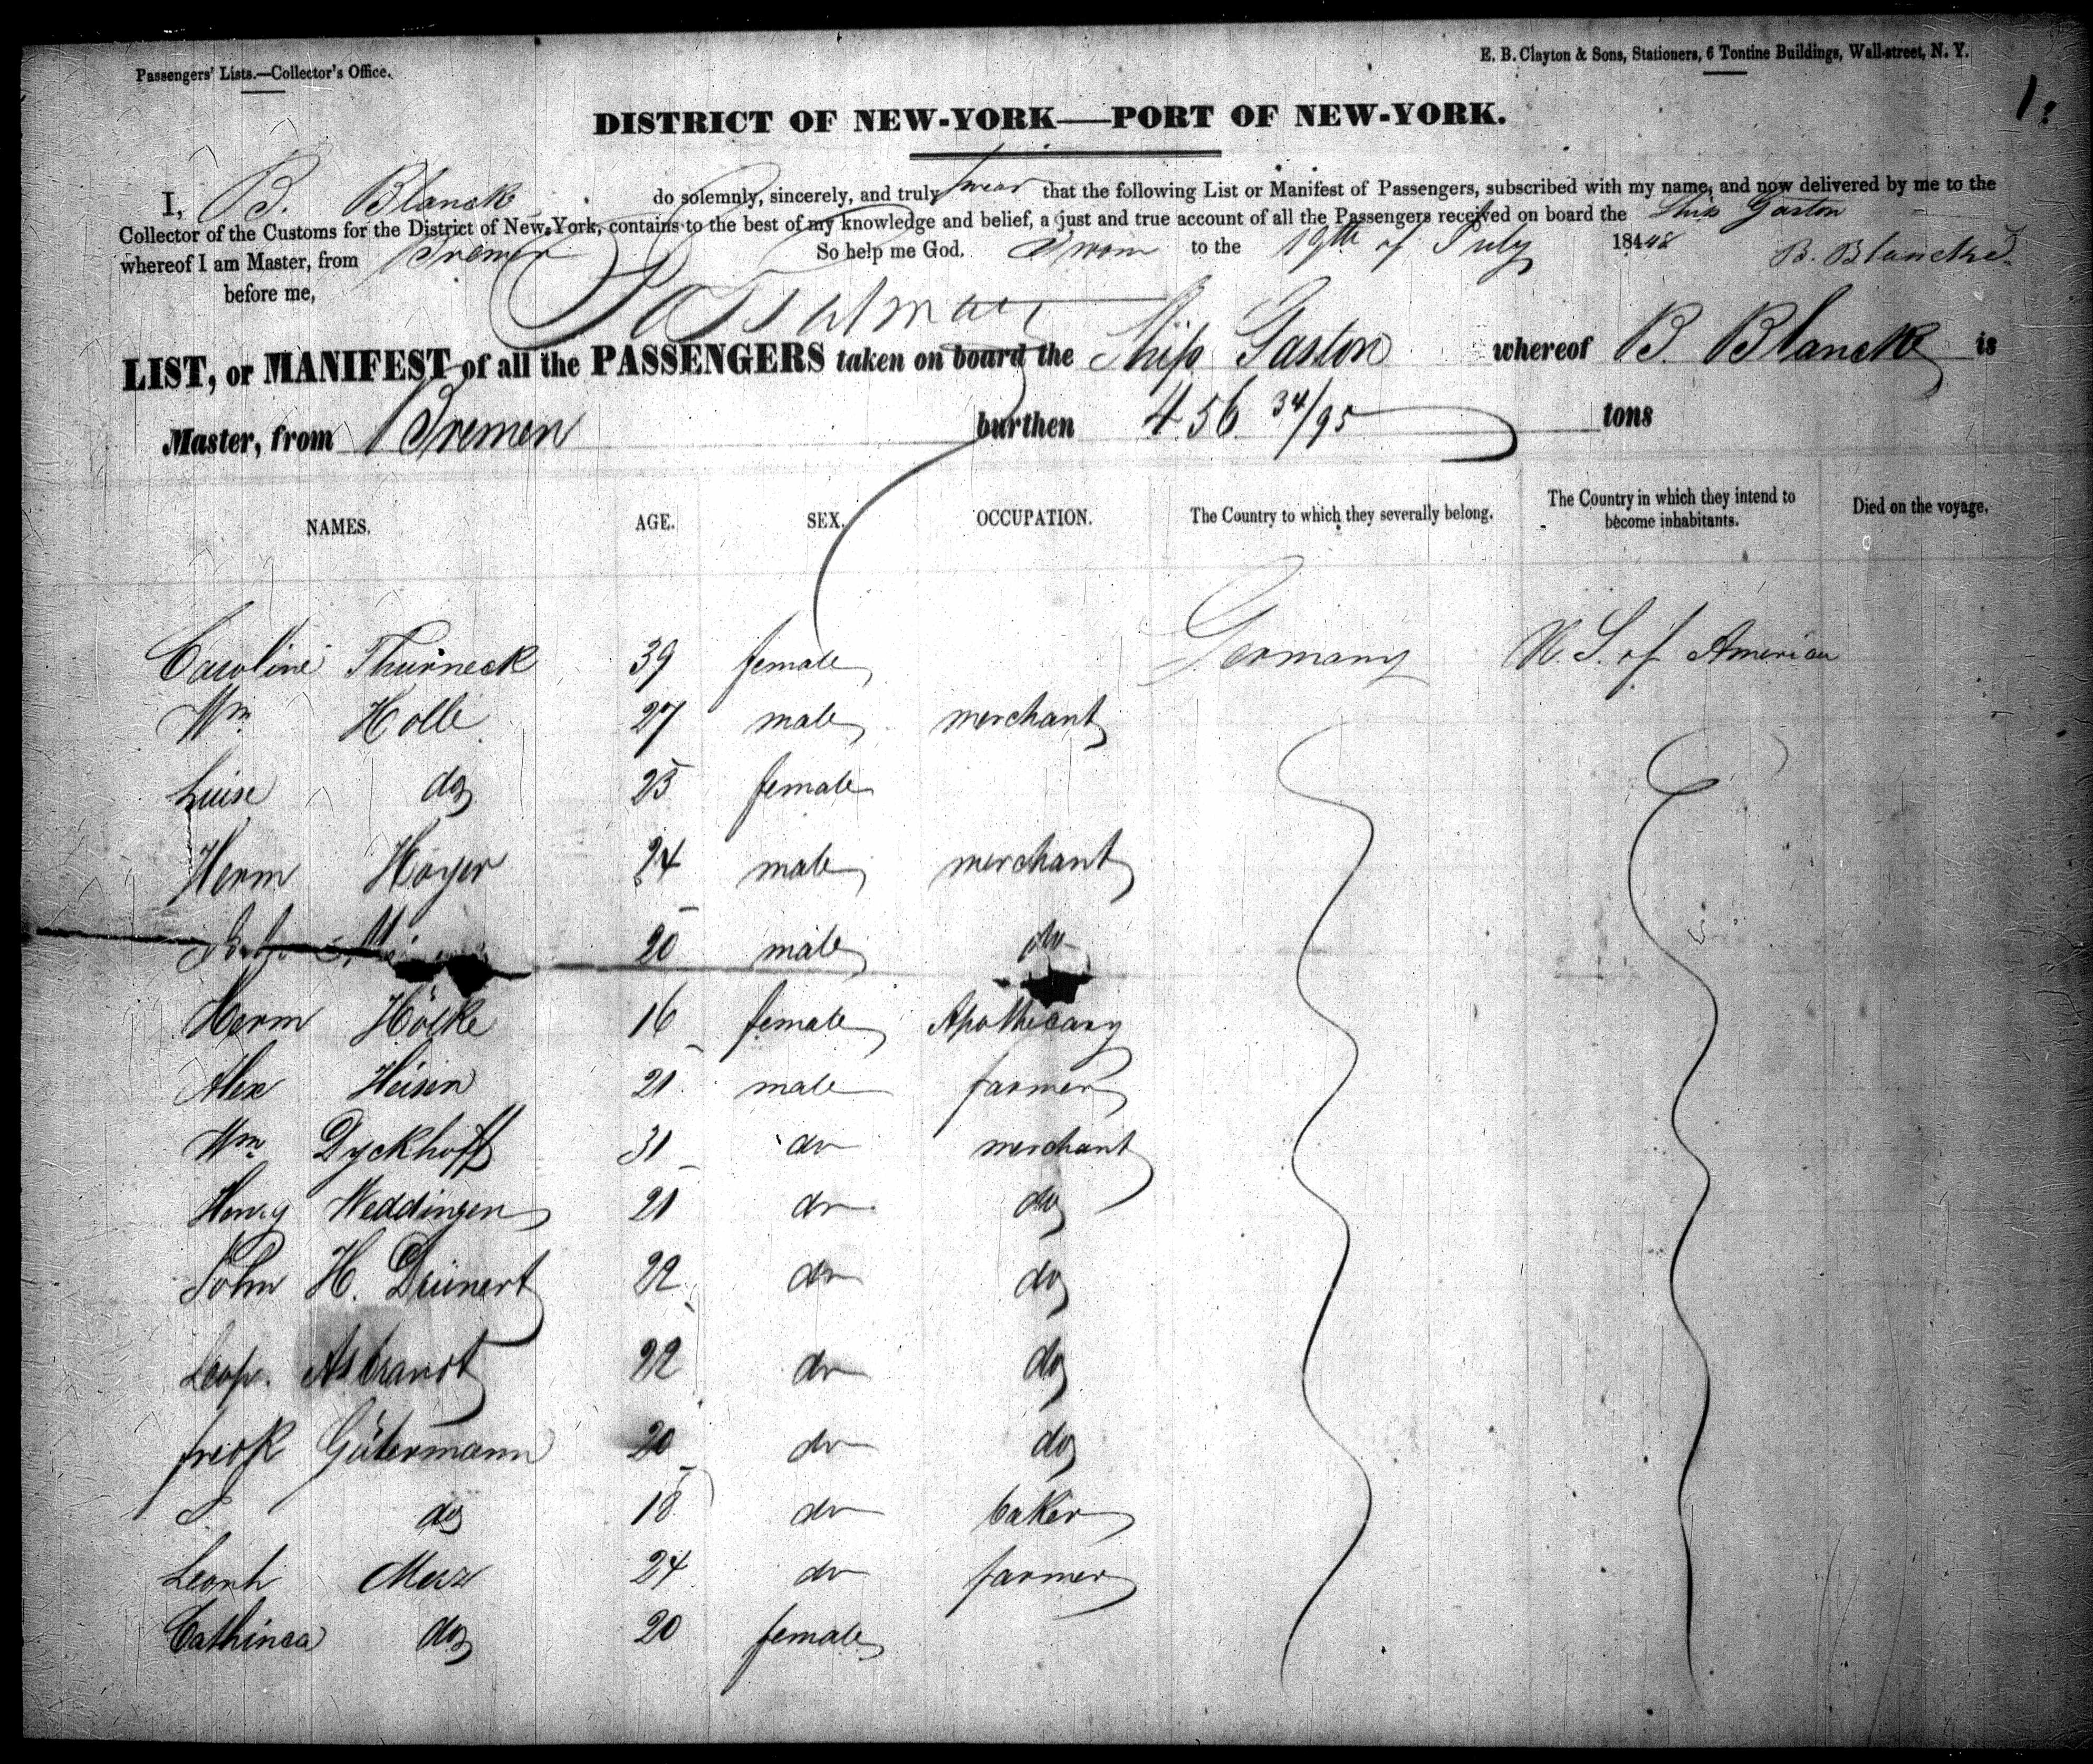 Passengers' Lists.—Collector's Office.
E. B. Clayton & Sons, Stationers, 6 Tontine Buildings, Wall-street, N. Y.
1.
DISTRICT OF NEW-YORK——PORT OF NEW-YORK.
I, B. Blancke do solemnly, sincerely, and truly swear that the following List or Manifest of Passengers, subscribed with my name, and now delivered by me to the
Collector of the Customs for the District of New-York, contains to the best of my knowledge and belief, a just and true account of all the Passengers received on board the Ship Gaston
whereof I am Master, from Bremen So help me God. Sworn to the 19th of July 18448 B. Blancke
before me,
LIST, or MANIFEST of all the PASSENGERS taken on board the Ship Gaston whereof B. Blancke is
Master, from Bremen burthen 456 34/95 tons
NAMES. AGE. SEX. OCCUPATION. The Country to which they severally belong. The Country in which they intend to become inhabitants. Died on the voyage.
Caroline Thurneck 39 female Germany U. S. of America
Wm Holle 27 male merchant
Luise do 23 female
Herm Hoyer 24 male merchant
20 male do
Herm Hölke 16 female Apothecary
Alex Heisen 21 male farmer
Wm Dyckhoff 31 do merchant
Henry Weddingen 21 do do
John H. Deünert 22 do do
Leop. Asbrandt 22 do do
fredk Gütermann 20 do do
S do 18 do baker
Leonh Merz 24 do farmer
Cathinca do 20 female